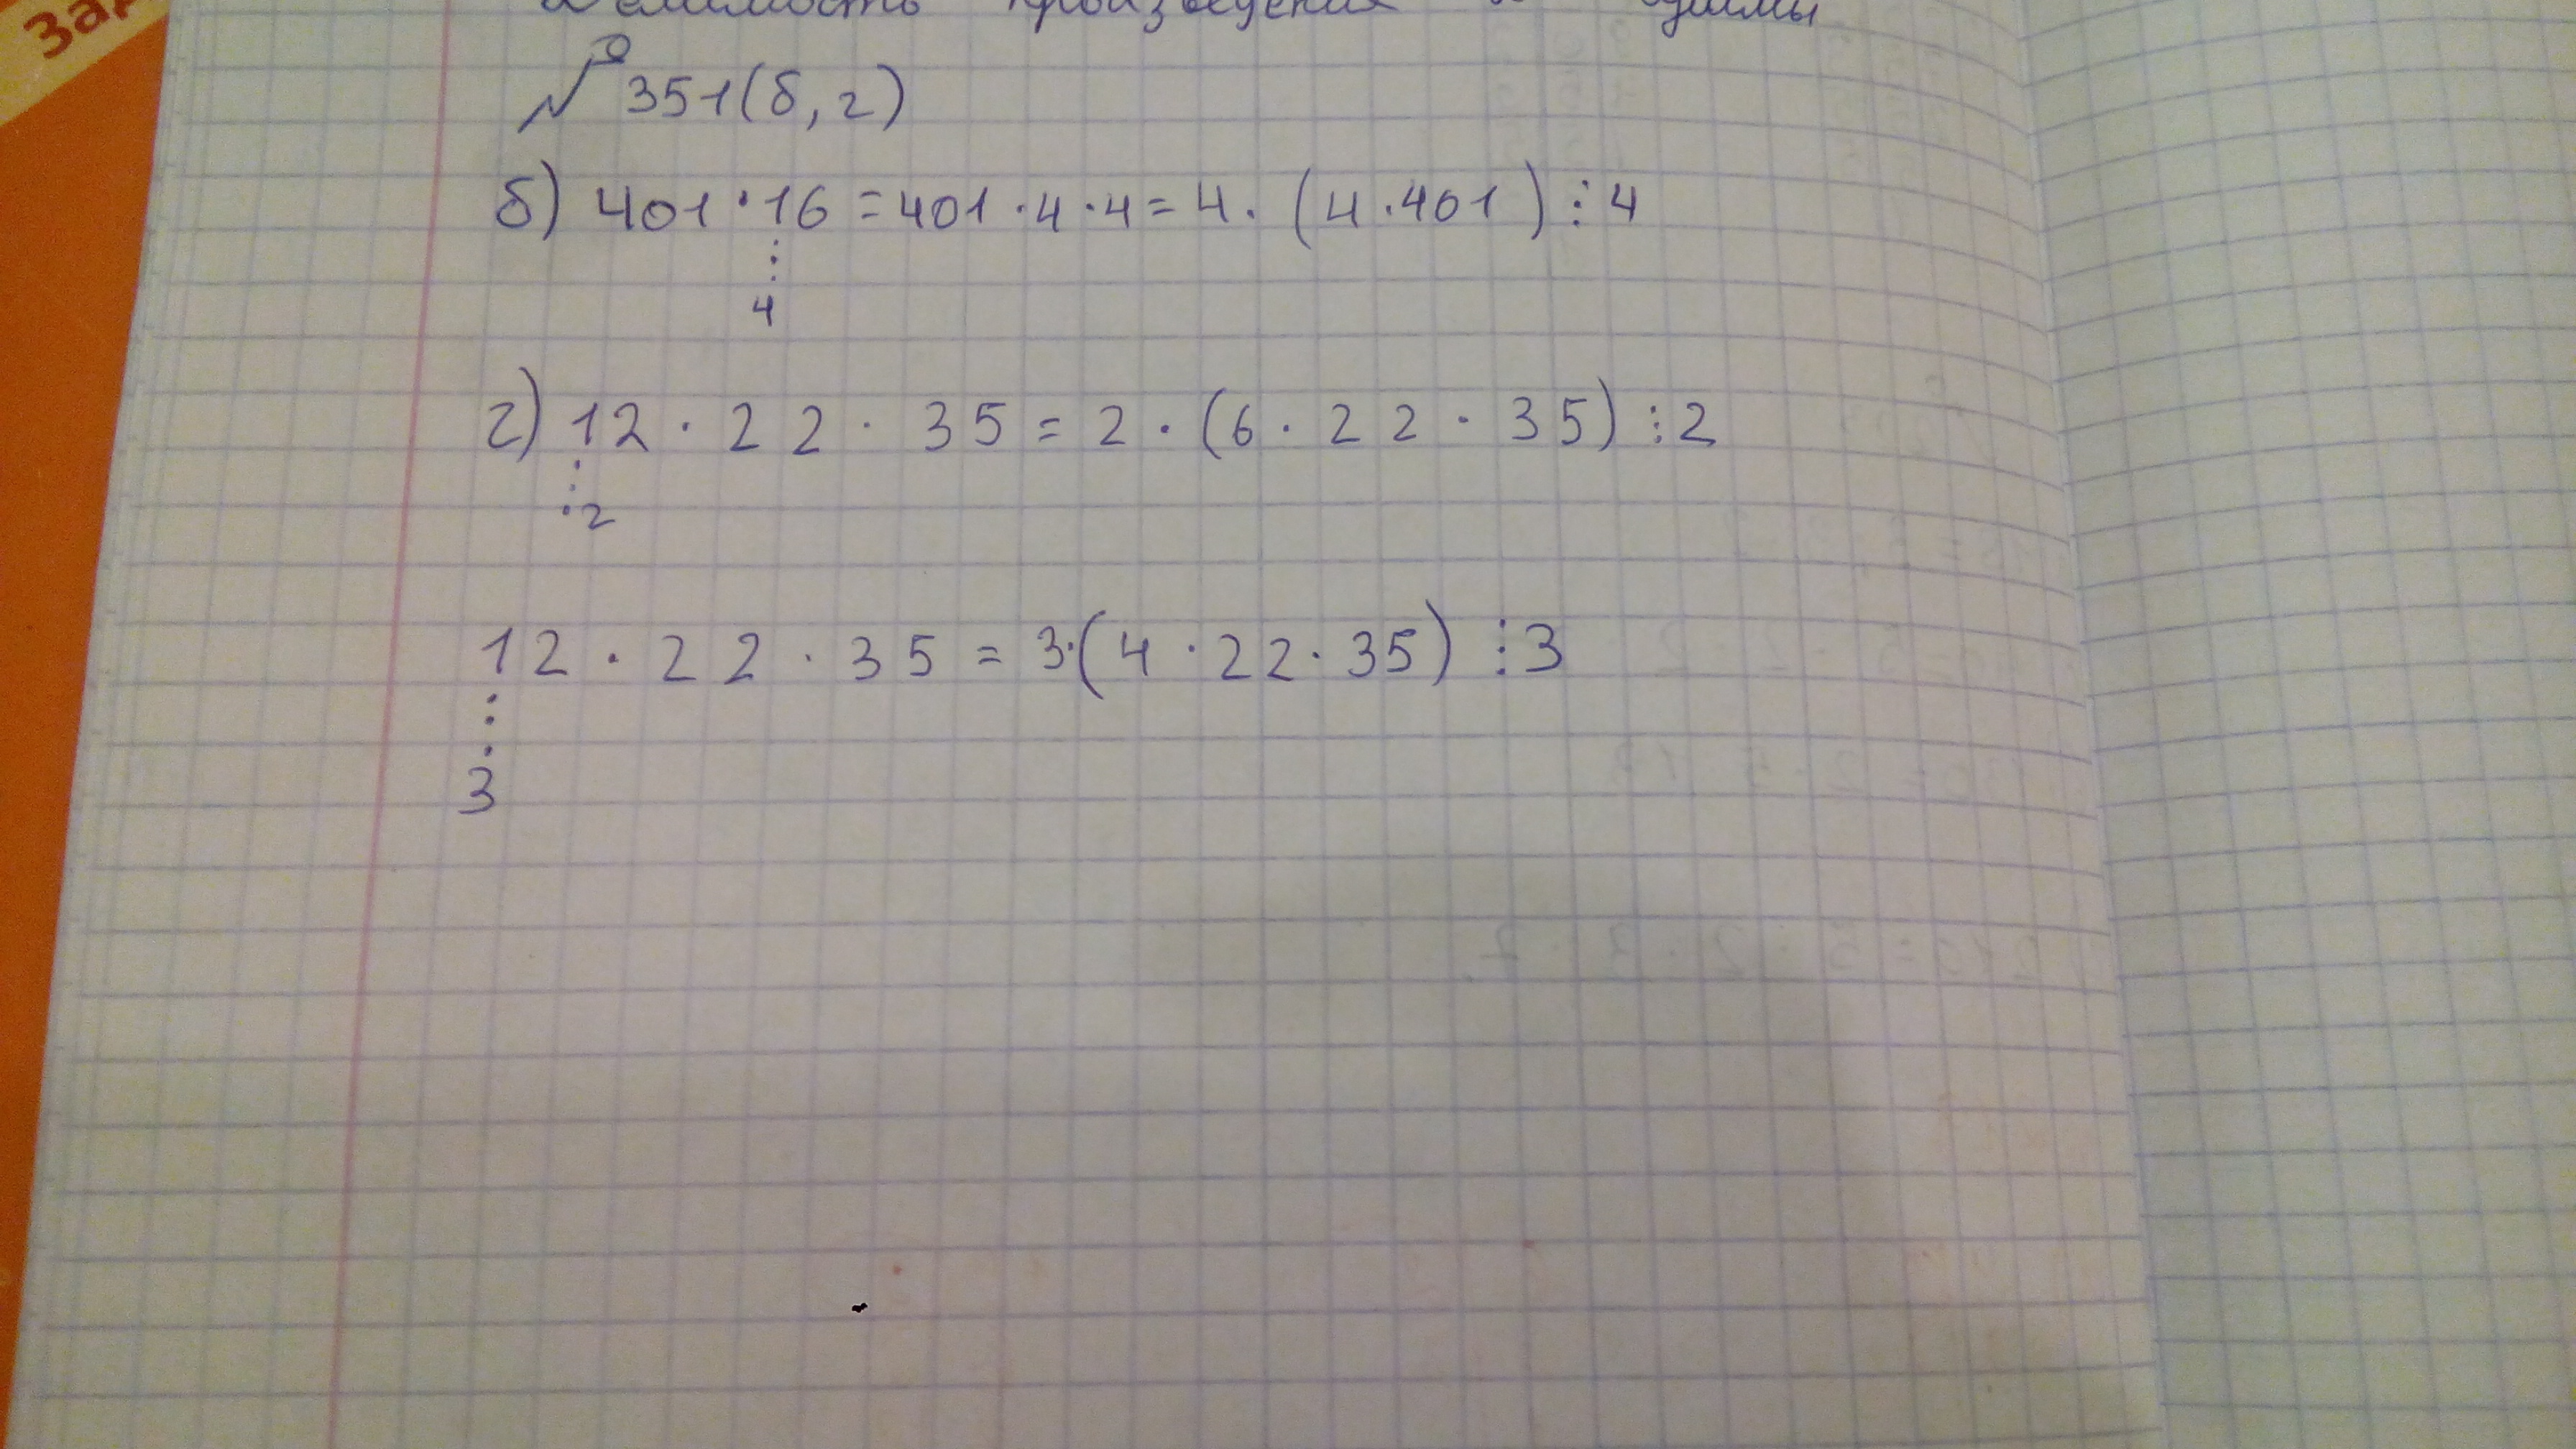 Зад
Делимость произведения и суммы
№ 351(б, г)
б) 401 · 16 = 401 · 4 · 4 = 4 · (4 · 401) ⋮ 4
⋮
4
г) 12 · 22 · 35 = 2 · (6 · 22 · 35) ⋮ 2
⋮ 2
12 · 22 · 35 = 3 · (4 · 22 · 35) ⋮ 3
⋮
3